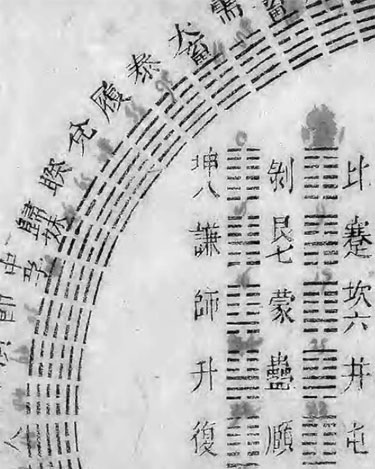 比
蹇
坎六
井
屯
剝
艮七
蒙
蠱
頤
坤八
謙
師
升
復
需
大畜
泰
履
兌
睽
歸妹
中孚
節